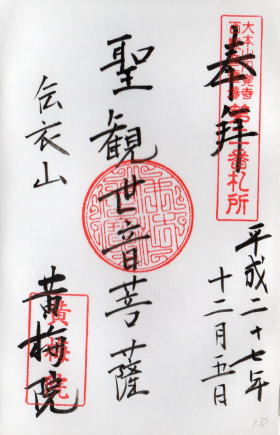 番札所
奉拝
平成二十七年
十二月五日
聖観世音菩薩
伝衣山
黄梅院
黄梅院
10